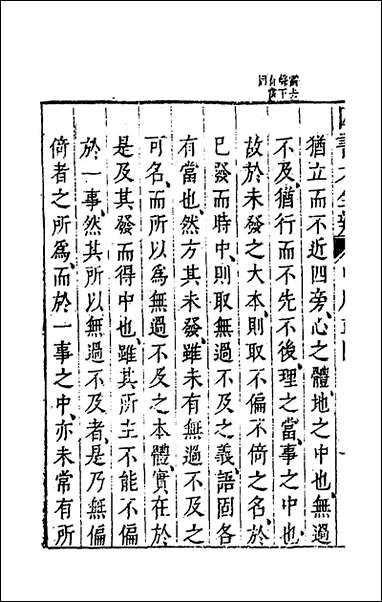 猶立而不近四旁、心之體地之中也、無過
不及、猶行而不先不後、理之當、事之中也、
故於未發之大本、則取不偏不倚之名、於
已發而時中、則取無過不及之義、語固各
有當也、然方其未發、雖未有無過不及之
可名、而所以為無過不及之本體、實在於
是及其發而得中也、雖其所主不能不偏
於一事、然其所以無過不及者、是乃無偏
倚者之所為、而於一事之中、亦未常有所